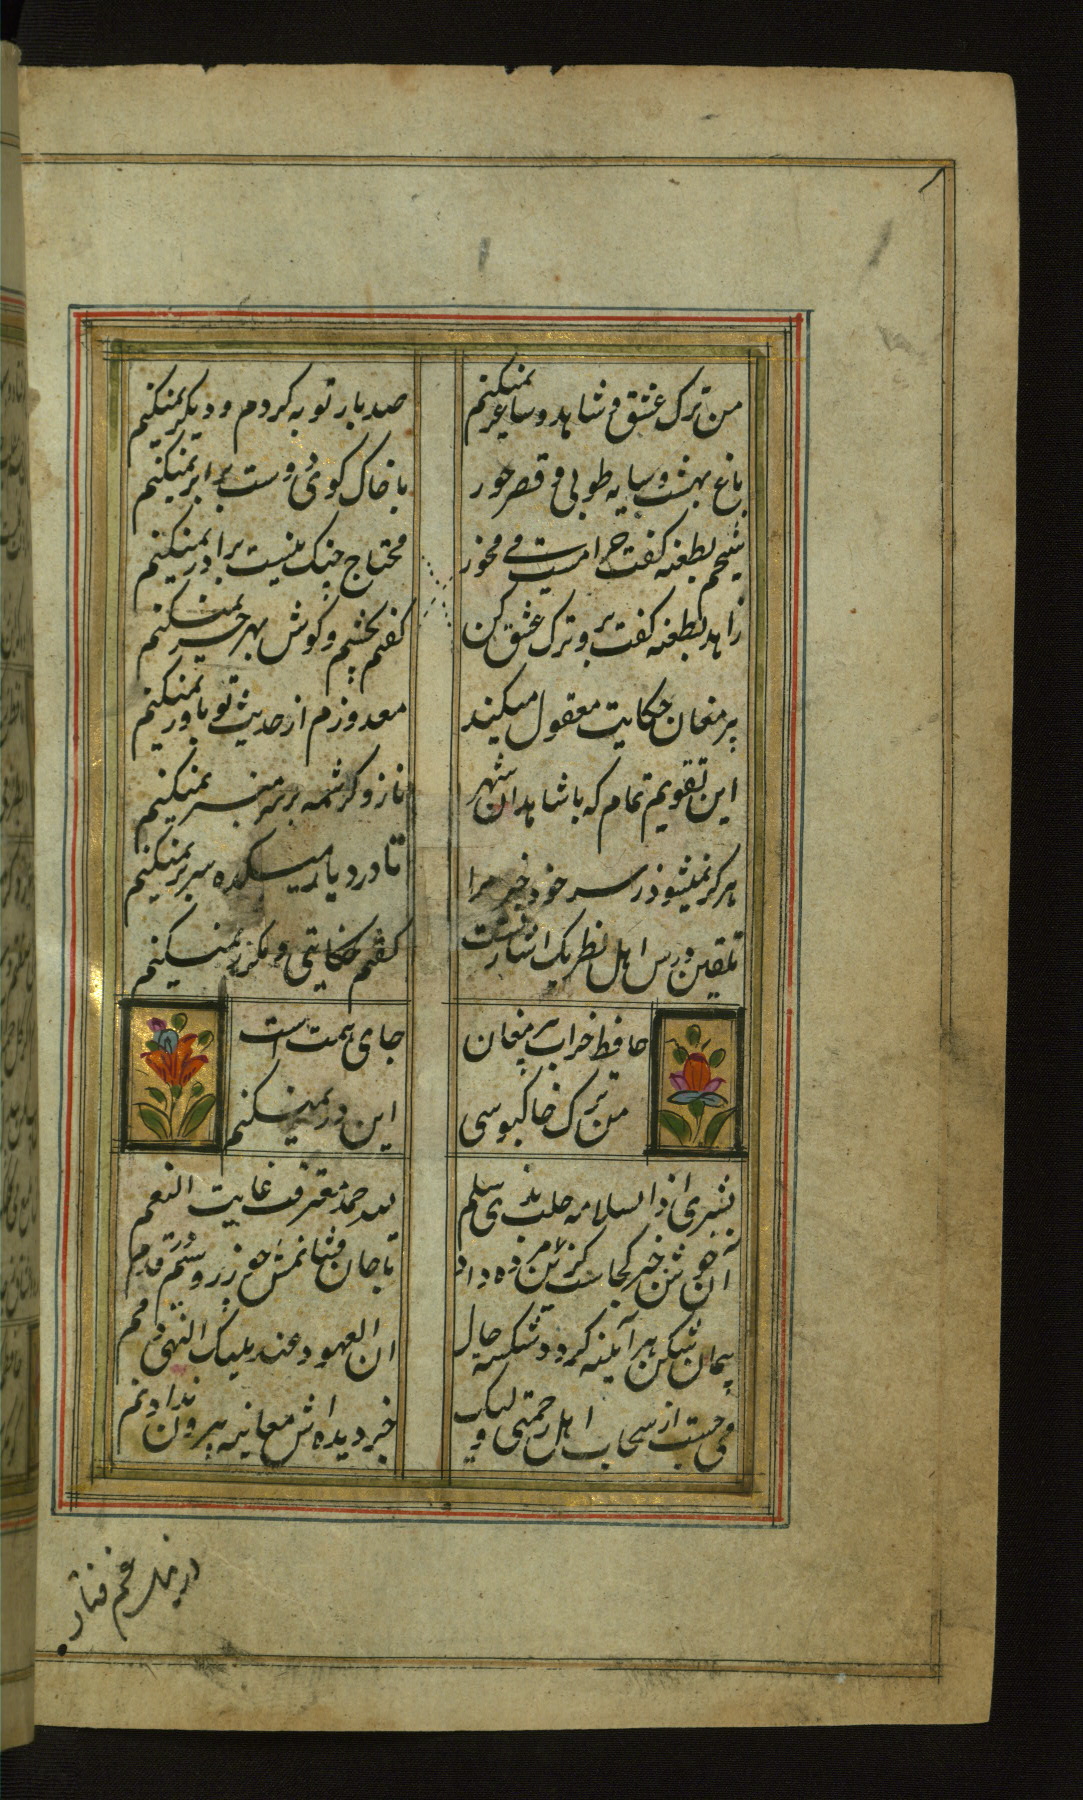 من ترک عشق و شاهد و ساغر نمیکنم
صد بار توبه کردم و دیگر نمیکنم
باغ بهشت و سایه طوبی و قصر حور
با خاک کوی دوست برابر نمیکنم
شیخم بطعنه کفت حرامست می مخور
محتاج جنک نیست برادر نمیکنم
زاهد بطعنه کفت برو ترک عشق کن
کفتم بچشم و کوش بهر خر نمیکنم
پیر مغان حکایت معقول میکند
معذورم از حدیث تو باور نمیکنم
این تقویم تمام که با شاهدان شهر
ناز و کرشمه بر سر منبر نمیکنم
هرکز نمیشود ز سر خود خبر مرا
تا در دیار میکده سر بر نمیکنم
تلقین درس اهل نظر یک اشارتست
کفتم حکایتی و مکرر نمیکنم
حافظ خراب پیر مغان جای همت است
من ترک خاکبوسی این در نمیکنم
بشری اذ السلامه حلت بذی سلم
لله حمد معترف غایت النعم
آن خوش خبر کجاست کزین مژده داد
تا جان فشانمش چو زر و سیم در قدم
پیمان شکن هر آینه کردد شکسته حال
ان العهود عند ملیک النهی ذمم
می جست از سحاب امل رحمتی ولیک
جز دیده اش معاینه بیرون نداد نم
در نیل غم فتاد